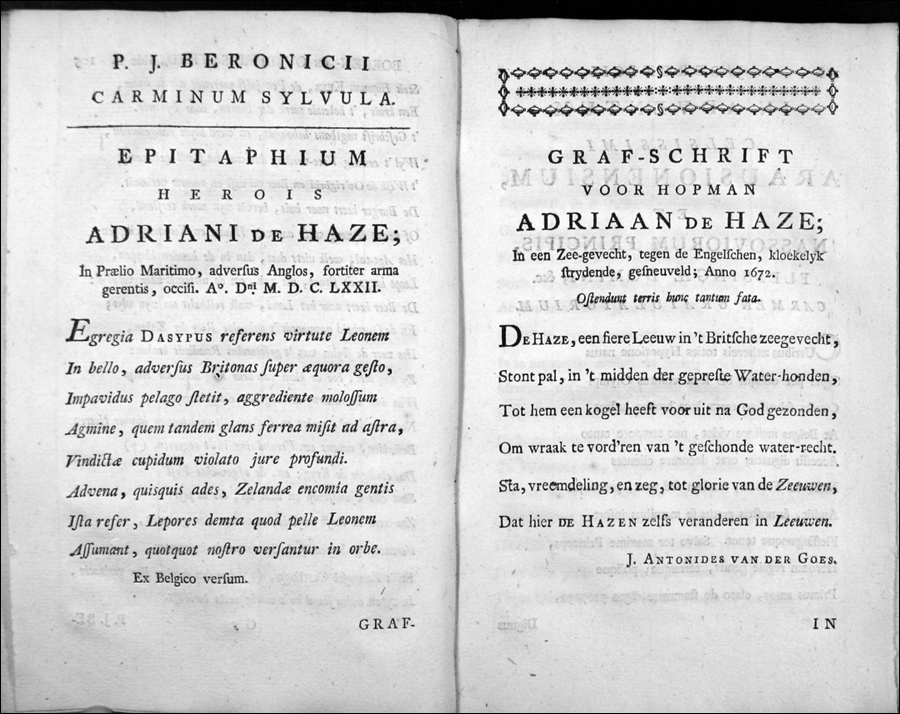 P. J. BERONICII
CARMINUM SYLVULA.
EPITAPHIUM
HEROIS
ADRIANI DE HAZE;
In Prælio Maritimo, adverſus Anglos, fortiter arma
gerentis, occiſi. Aº. Dⁿⁱ M. D. C. LXXII.
Egregia DASYPUS referens virtute Leonem
In bello, adverſus Britonas ſuper æquora geſto,
Impavidus pelago ſtetit, aggrediente moloſſum
Agmine, quem tandem glans ferrea miſit ad aſtra,
Vindictæ cupidum violato jure profundi.
Advena, quisquis ades, Zelandæ encomia gentis
Iſta refer, Lepores demta quod pelle Leonem
Aſſumant, quotquot noſtro verſantur in orbe.
Ex Belgico verſum.
GRAF-
GRAF-SCHRIFT
VOOR HOPMAN
ADRIAAN DE HAZE;
In een Zee-gevecht, tegen de Engelſchen, kloekelyk
ſtrydende, geſneuveld; Anno 1672.
Oſtendunt terris hunc tantum fata.
DE HAZE, een fiere Leeuw in 't Britſche zeegevecht,
Stont pal, in 't midden der gepreſte Water-honden,
Tot hem een kogel heeft voor uit na God gezonden,
Om wraak te vord'ren van 't geſchonde water-recht.
Sta, vreemdeling, en zeg, tot glorie van de Zeeuwen,
Dat hier DE HAZEN zelfs veranderen in Leeuwen.
J. ANTONIDES VAN DER GOES.
IN